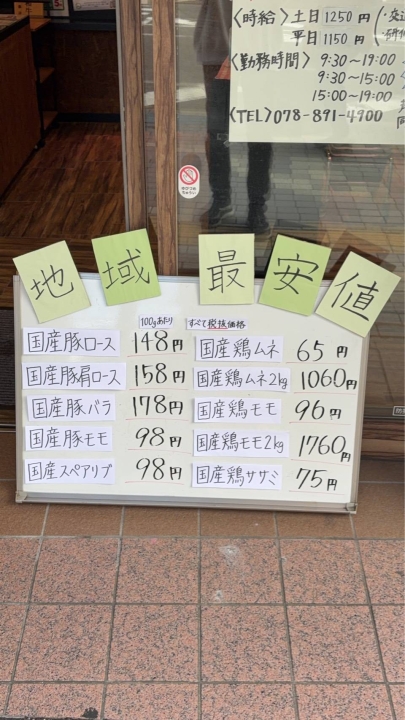 〈時給〉土日1250円
平日1150円
〈勤務時間〉9:30～19:00
9:30～15:00
15:00～19:00
〈TEL〉078-891-4900
地域最安値
100gあたり すべて税抜価格
国産豚ロース 148円
国産豚肩ロース 158円
国産豚バラ 178円
国産豚モモ 98円
国産スペアリブ 98円
国産鶏ムネ 65円
国産鶏ムネ2kg 1060円
国産鶏モモ 96円
国産鶏モモ2kg 1760円
国産鶏ササミ 75円